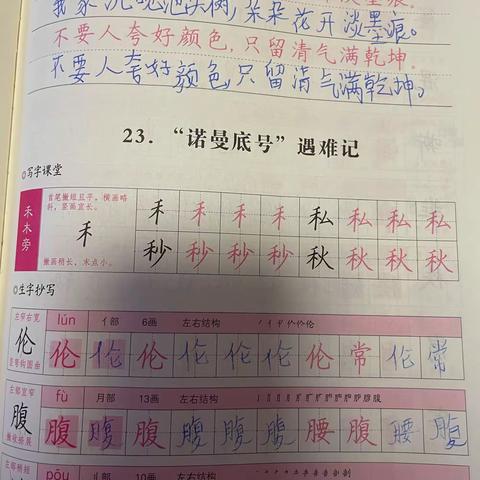 我家洗砚池头树,朵朵花开淡墨痕。
不要人夸好颜色,只留清气满乾坤。
不要人夸好颜色,只留清气满乾坤。
23. “诺曼底号”遇难记
写字课堂
禾木旁
首尾撇短且平,横画略斜,竖画宜长。
禾 禾 禾 禾 禾 私 私 私 私
撇画稍长,末点小。
秒 秒 秒 秒 秋 秋 秋 秋
生字抄写
左窄右宽 lún 亻部 6画 左右结构
伦 伦 伦 伦 伦 伦 伦 伦 常 伦 常
竖弯钩圆曲
左郁宽窄 fù 月部 13画 左右结构
腹 腹 腹 腹 腹 腹 腹 腰 腹 腰 腹
撇收捺展
pōu 刂部 10画 左右结构